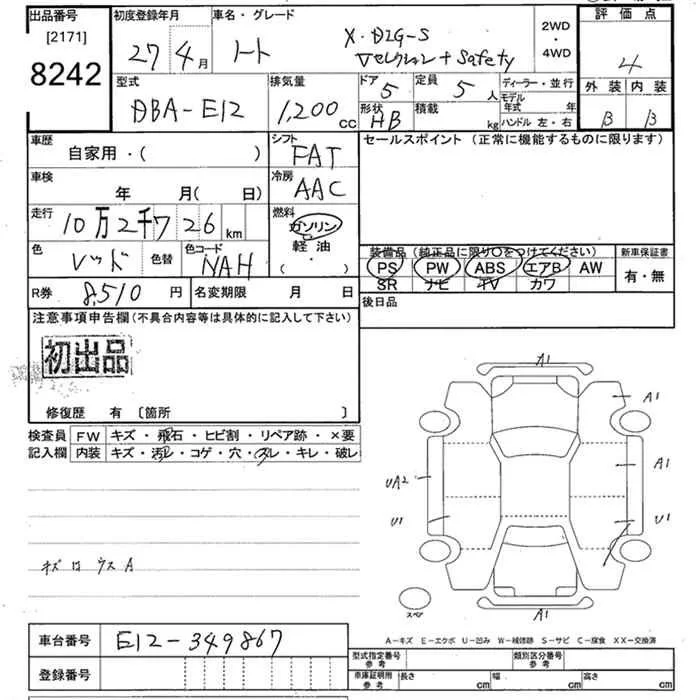 出品番号 初度登録年月 車名・グレード 2WD・4WD 評価点
[2171] X・DIG-S
8242 27年4月 ノート Vセレクション+Safety 4
型式 排気量 ドア 5 定員 5人 ディーラー・並行 外装 内装
DBA-E12 1,200cc 形状 HB 積載 kg モデル年式 年 B B
ハンドル 左・右
車歴 シフト セールスポイント (正常に機能するものに限ります)
自家用・( ) FAT
車検 冷房
年 月( 日) AAC
走行 燃料
10万2千7 26 km ガソリン
軽油
( ・ )
色 レッド 色替 色コード NAH
装備品 (純正品に限り○をつけてください) 新車保証書
PS PW ABS エアB AW 有・無
SR ナビ TV カワ
R券 8,510円 名変期限 月 日 後日品
注意事項申告欄(不具合内容等は具体的に記入して下さい)
初出品
修復歴 有 〔箇所 〕
検査員 FW キズ・飛石・ヒビ割・リペア跡・×要
記入欄 内装 キズ・汚レ・コゲ・穴・スレ・キレ・破レ
キズロウスA
A1
A1
A1
UA2
U1
U1
スペア
A1
A-キズ E-エクボ U-凹み W-補修跡 S-サビ C-腐食 XX-交換済
車台番号 E12-349867
登録番号
型式指定番号 参考 類別区分番号 参考
車庫証明用 参考 長さ cm 幅 cm 高さ cm